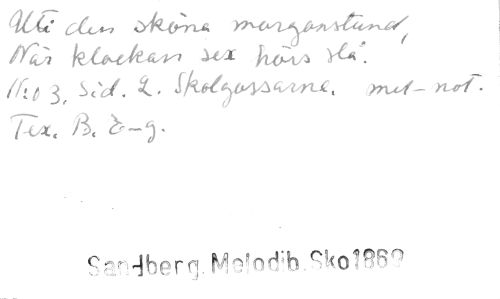 Uti den sköna morgonstund,
När klockan sex hörs slå.
No 3, Sid. 2. Skolgossarne. mel-not.
Tex. B. E-g.
Sandberg. Melodib. Sko1869